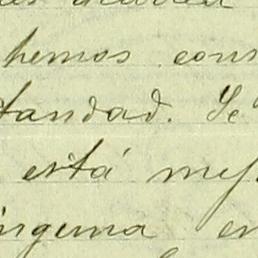 hemos cons
tandad. Se
está mej
inguna en